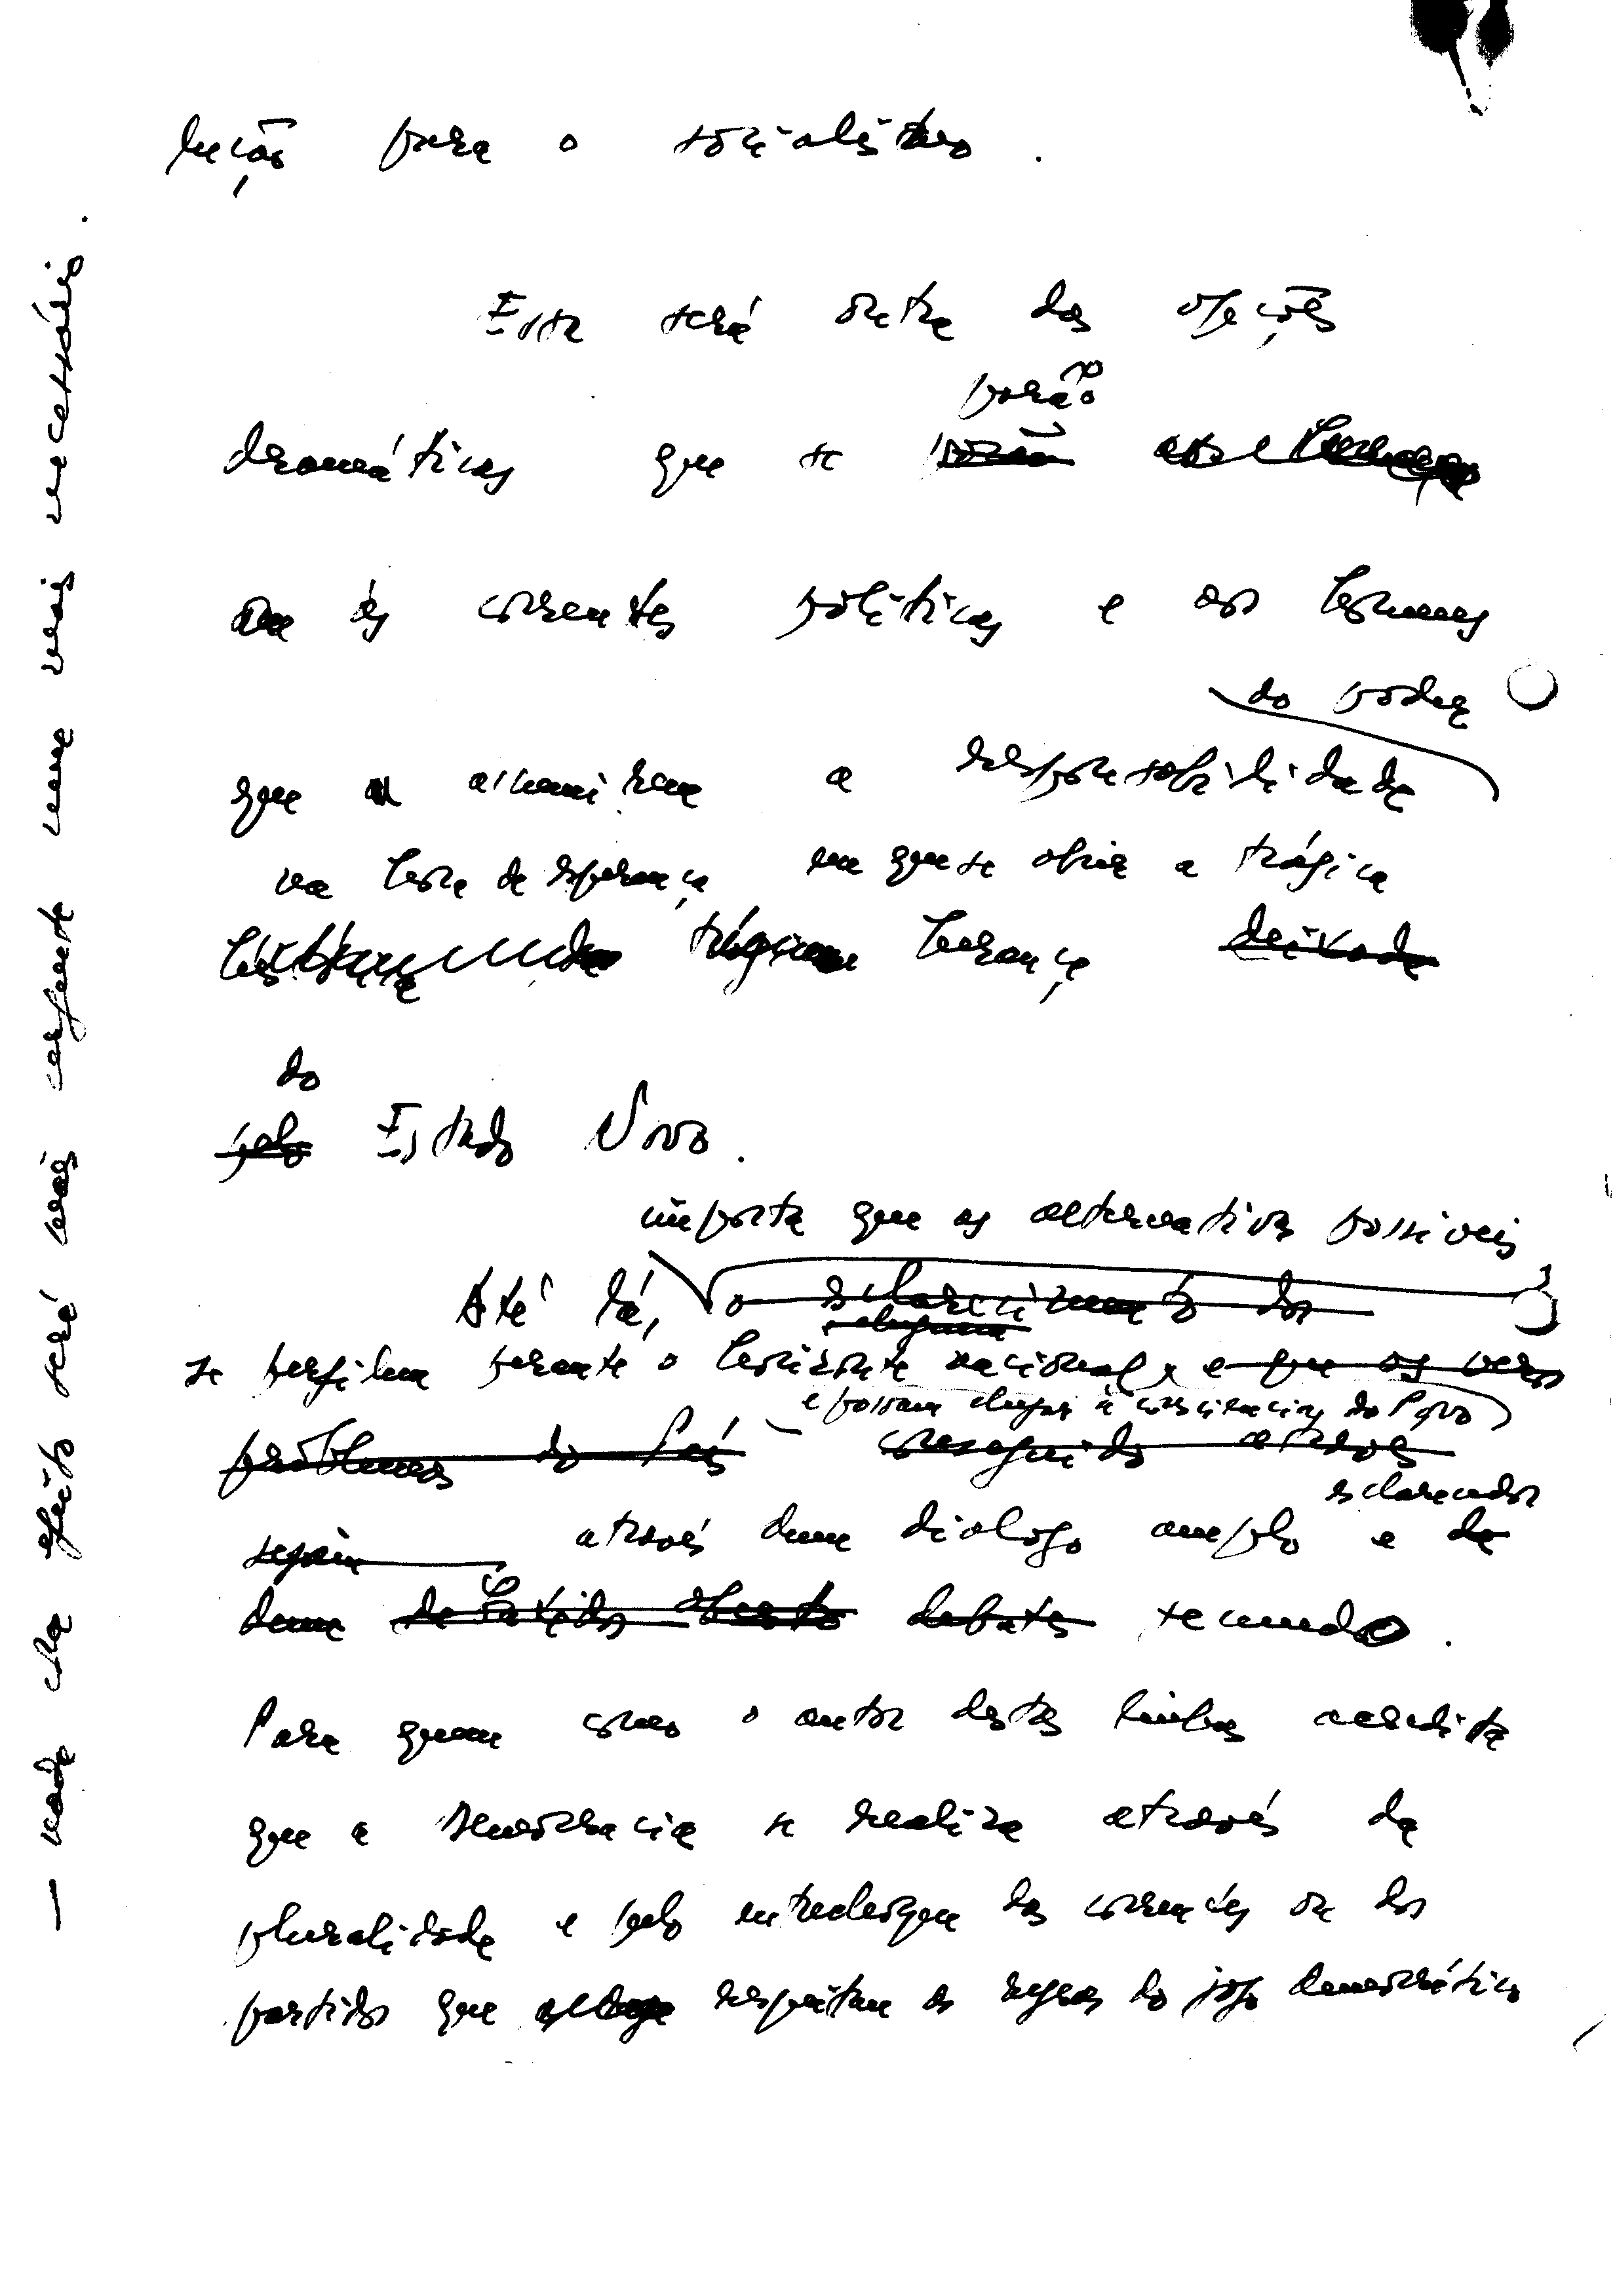 lução para o socialismo.
Essa será outra das opções
porão
dramáticas que se
às correntes políticas e aos homens
do poder
que assumiram a responsabilidade
na hora de esperança em que se abria a trágica
herança deixada
do
pelo Estado Novo.
importa que as alternativas possíveis
Até lá, o esclarecimento dos
se perfilem perante o horizonte nacional, e que os
e possam chegar à consciência do Povo
problemas do País
esclarecedor
através dum diálogo amplo e de
dum debatido aberto debate fecundo.
Para quem como o autor destas linhas acredita
que a Democracia se realiza através da
pluralidade e pelo entrechoque das correntes ou dos
partidos que respeitam as regras do jogo democrático
— nada cha efeito será mais urgente nem mais necessário.